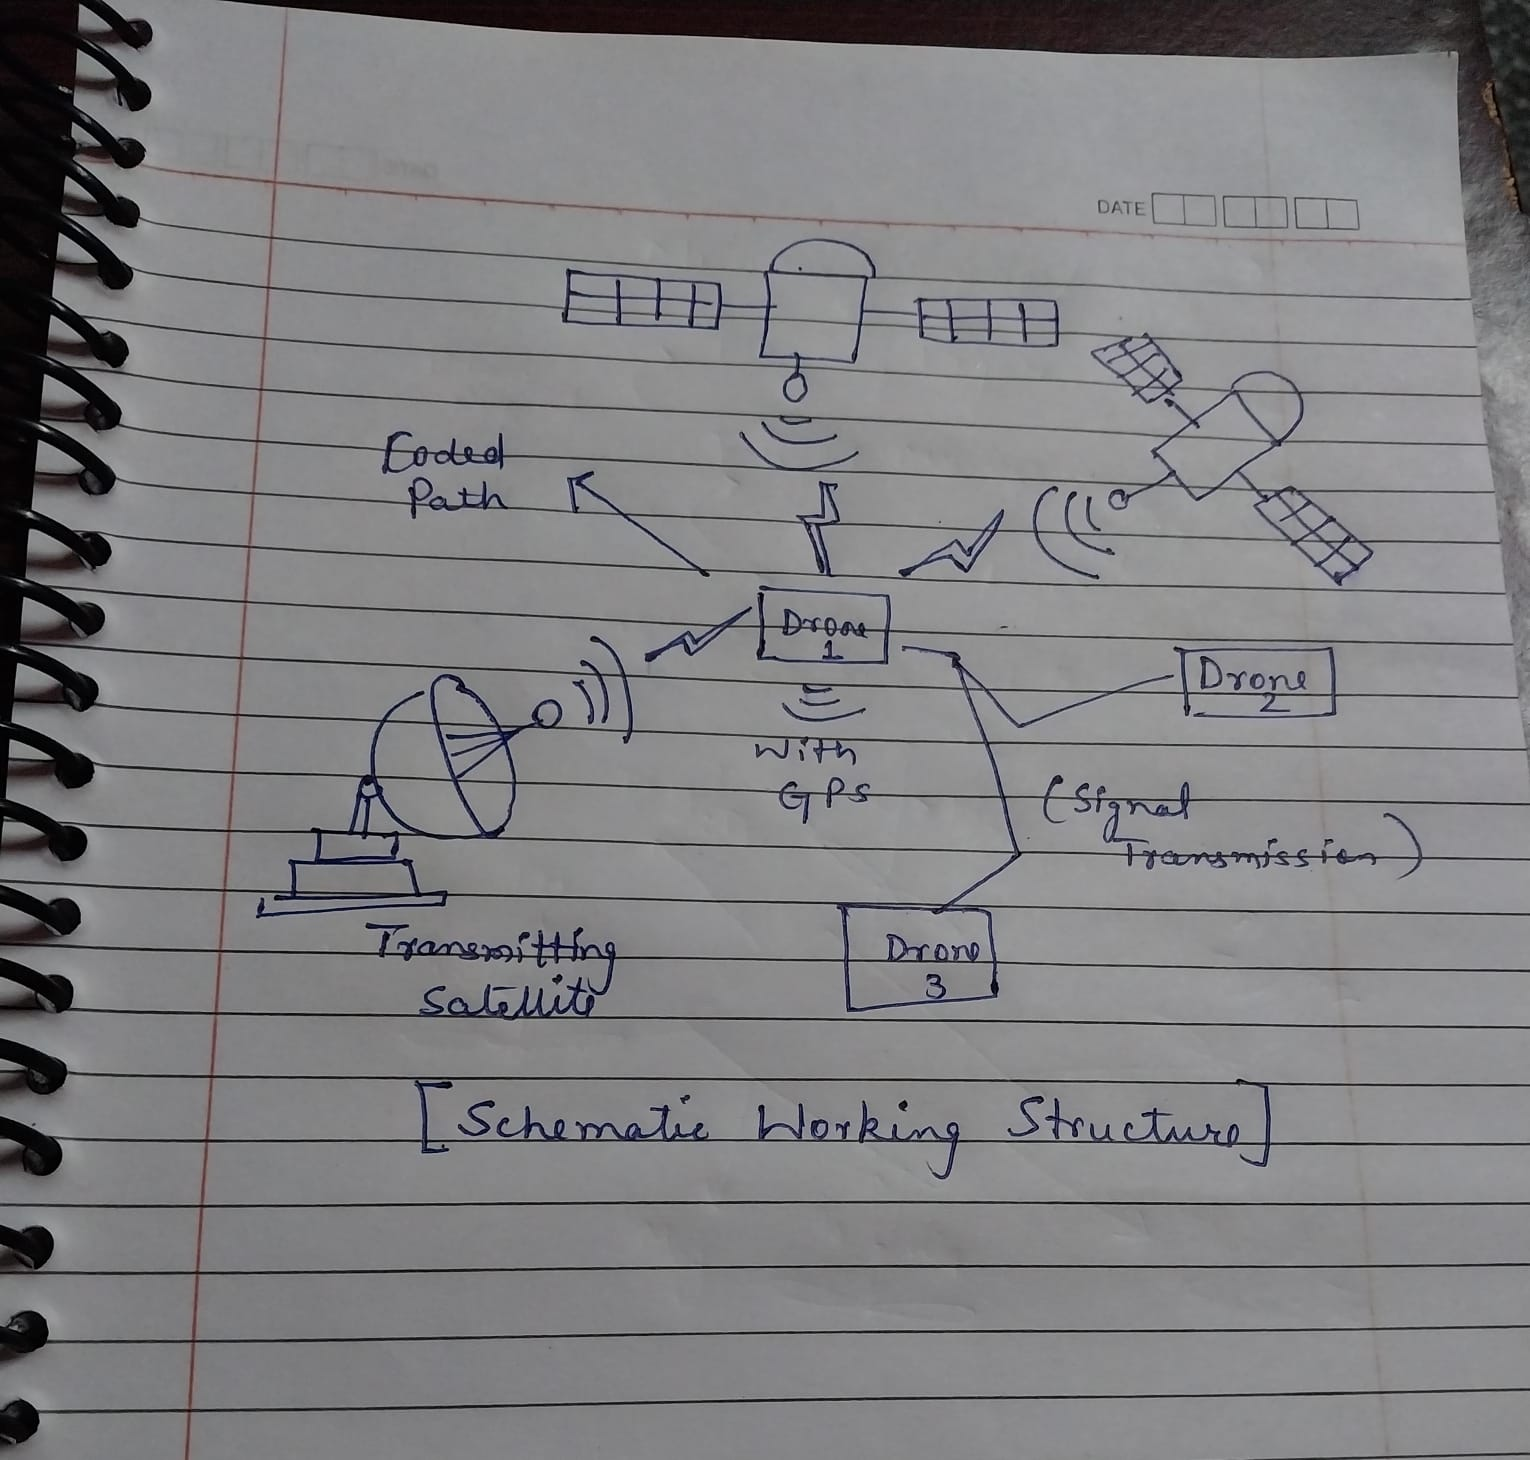 DATE
Coded
Path
Drone
1
Drone
2
With
GPS
(Signal
Transmission)
Drone
3
Transmitting
Satellite
[Schematic Working Structure]